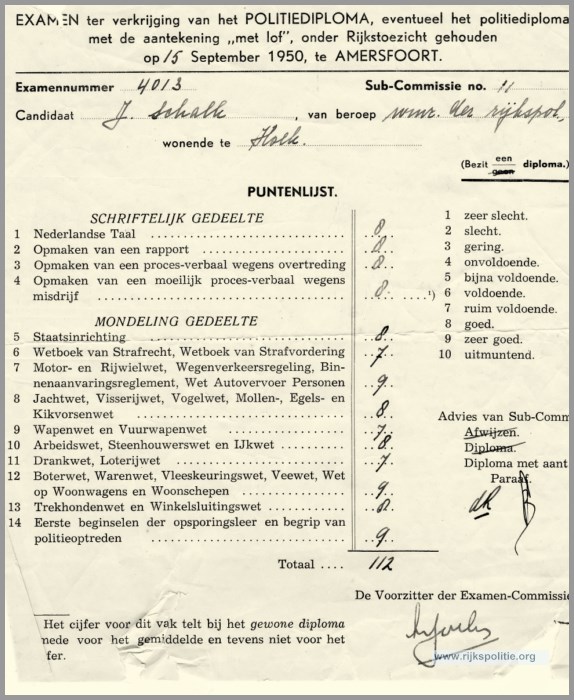 EXAMEN ter verkrijging van het POLITIEDIPLOMA, eventueel het politiediploma
met de aantekening „met lof”, onder Rijkstoezicht gehouden
op 15 September 1950, te AMERSFOORT.
Examennummer 4013 Sub-Commissie no. 11
Candidaat J. Schalk, van beroep wmr. der rijkspol,
wonende te
(Bezit een geen diploma.)
PUNTENLIJST.
SCHRIFTELIJK GEDEELTE
1 Nederlandse Taal 8
2 Opmaken van een rapport 8
3 Opmaken van een proces-verbaal wegens overtreding 8
4 Opmaken van een moeilijk proces-verbaal wegens
misdrijf 8 ¹)
MONDELING GEDEELTE
5 Staatsinrichting 8
6 Wetboek van Strafrecht, Wetboek van Strafvordering 7
7 Motor- en Rijwielwet, Wegenverkeersregeling, Bin-
nenaanvaringsreglement, Wet Autovervoer Personen 9
8 Jachtwet, Visserijwet, Vogelwet, Mollen-, Egels- en
Kikvorsenwet 8
9 Wapenwet en Vuurwapenwet 7
10 Arbeidswet, Steenhouwerswet en IJkwet 8
11 Drankwet, Loterijwet 7
12 Boterwet, Warenwet, Vleeskeuringswet, Veewet, Wet
op Woonwagens en Woonschepen 9
13 Trekhondenwet en Winkelsluitingswet 8
14 Eerste beginselen der opsporingsleer en begrip van
politieoptreden 9
Totaal .... 112
1 zeer slecht.
2 slecht.
3 gering.
4 onvoldoende.
5 bijna voldoende.
6 voldoende.
7 ruim voldoende.
8 goed.
9 zeer goed.
10 uitmuntend.
Advies van Sub-Comm
Afwijzen.
Diploma.
Diploma met aant
Paraaf.
De Voorzitter der Examen-Commissie
Het cijfer voor dit vak telt bij het gewone diploma
mede voor het gemiddelde en tevens niet voor het
fer.
www.rijkspolitie.org